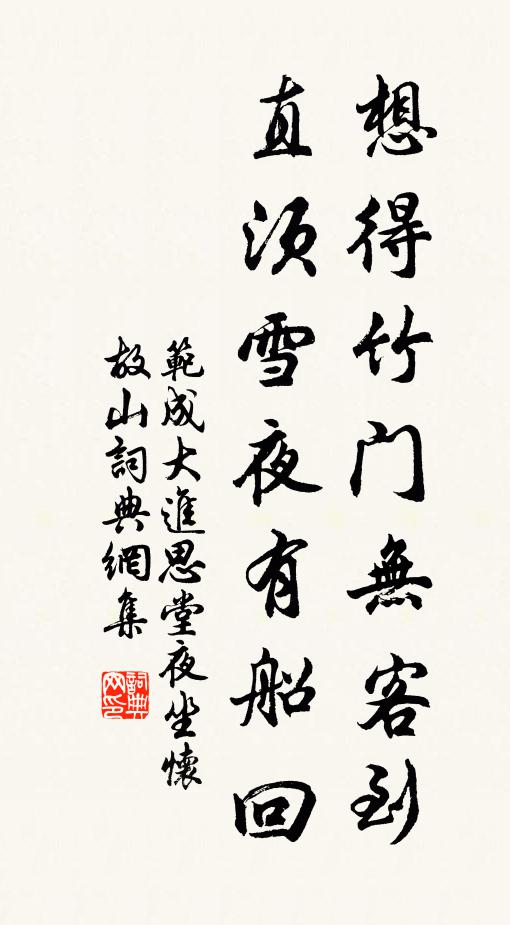 想得竹门無客到
直須雪夜有船回
範成大進思堂夜坐懷
故山詞典網集
詞典
网印